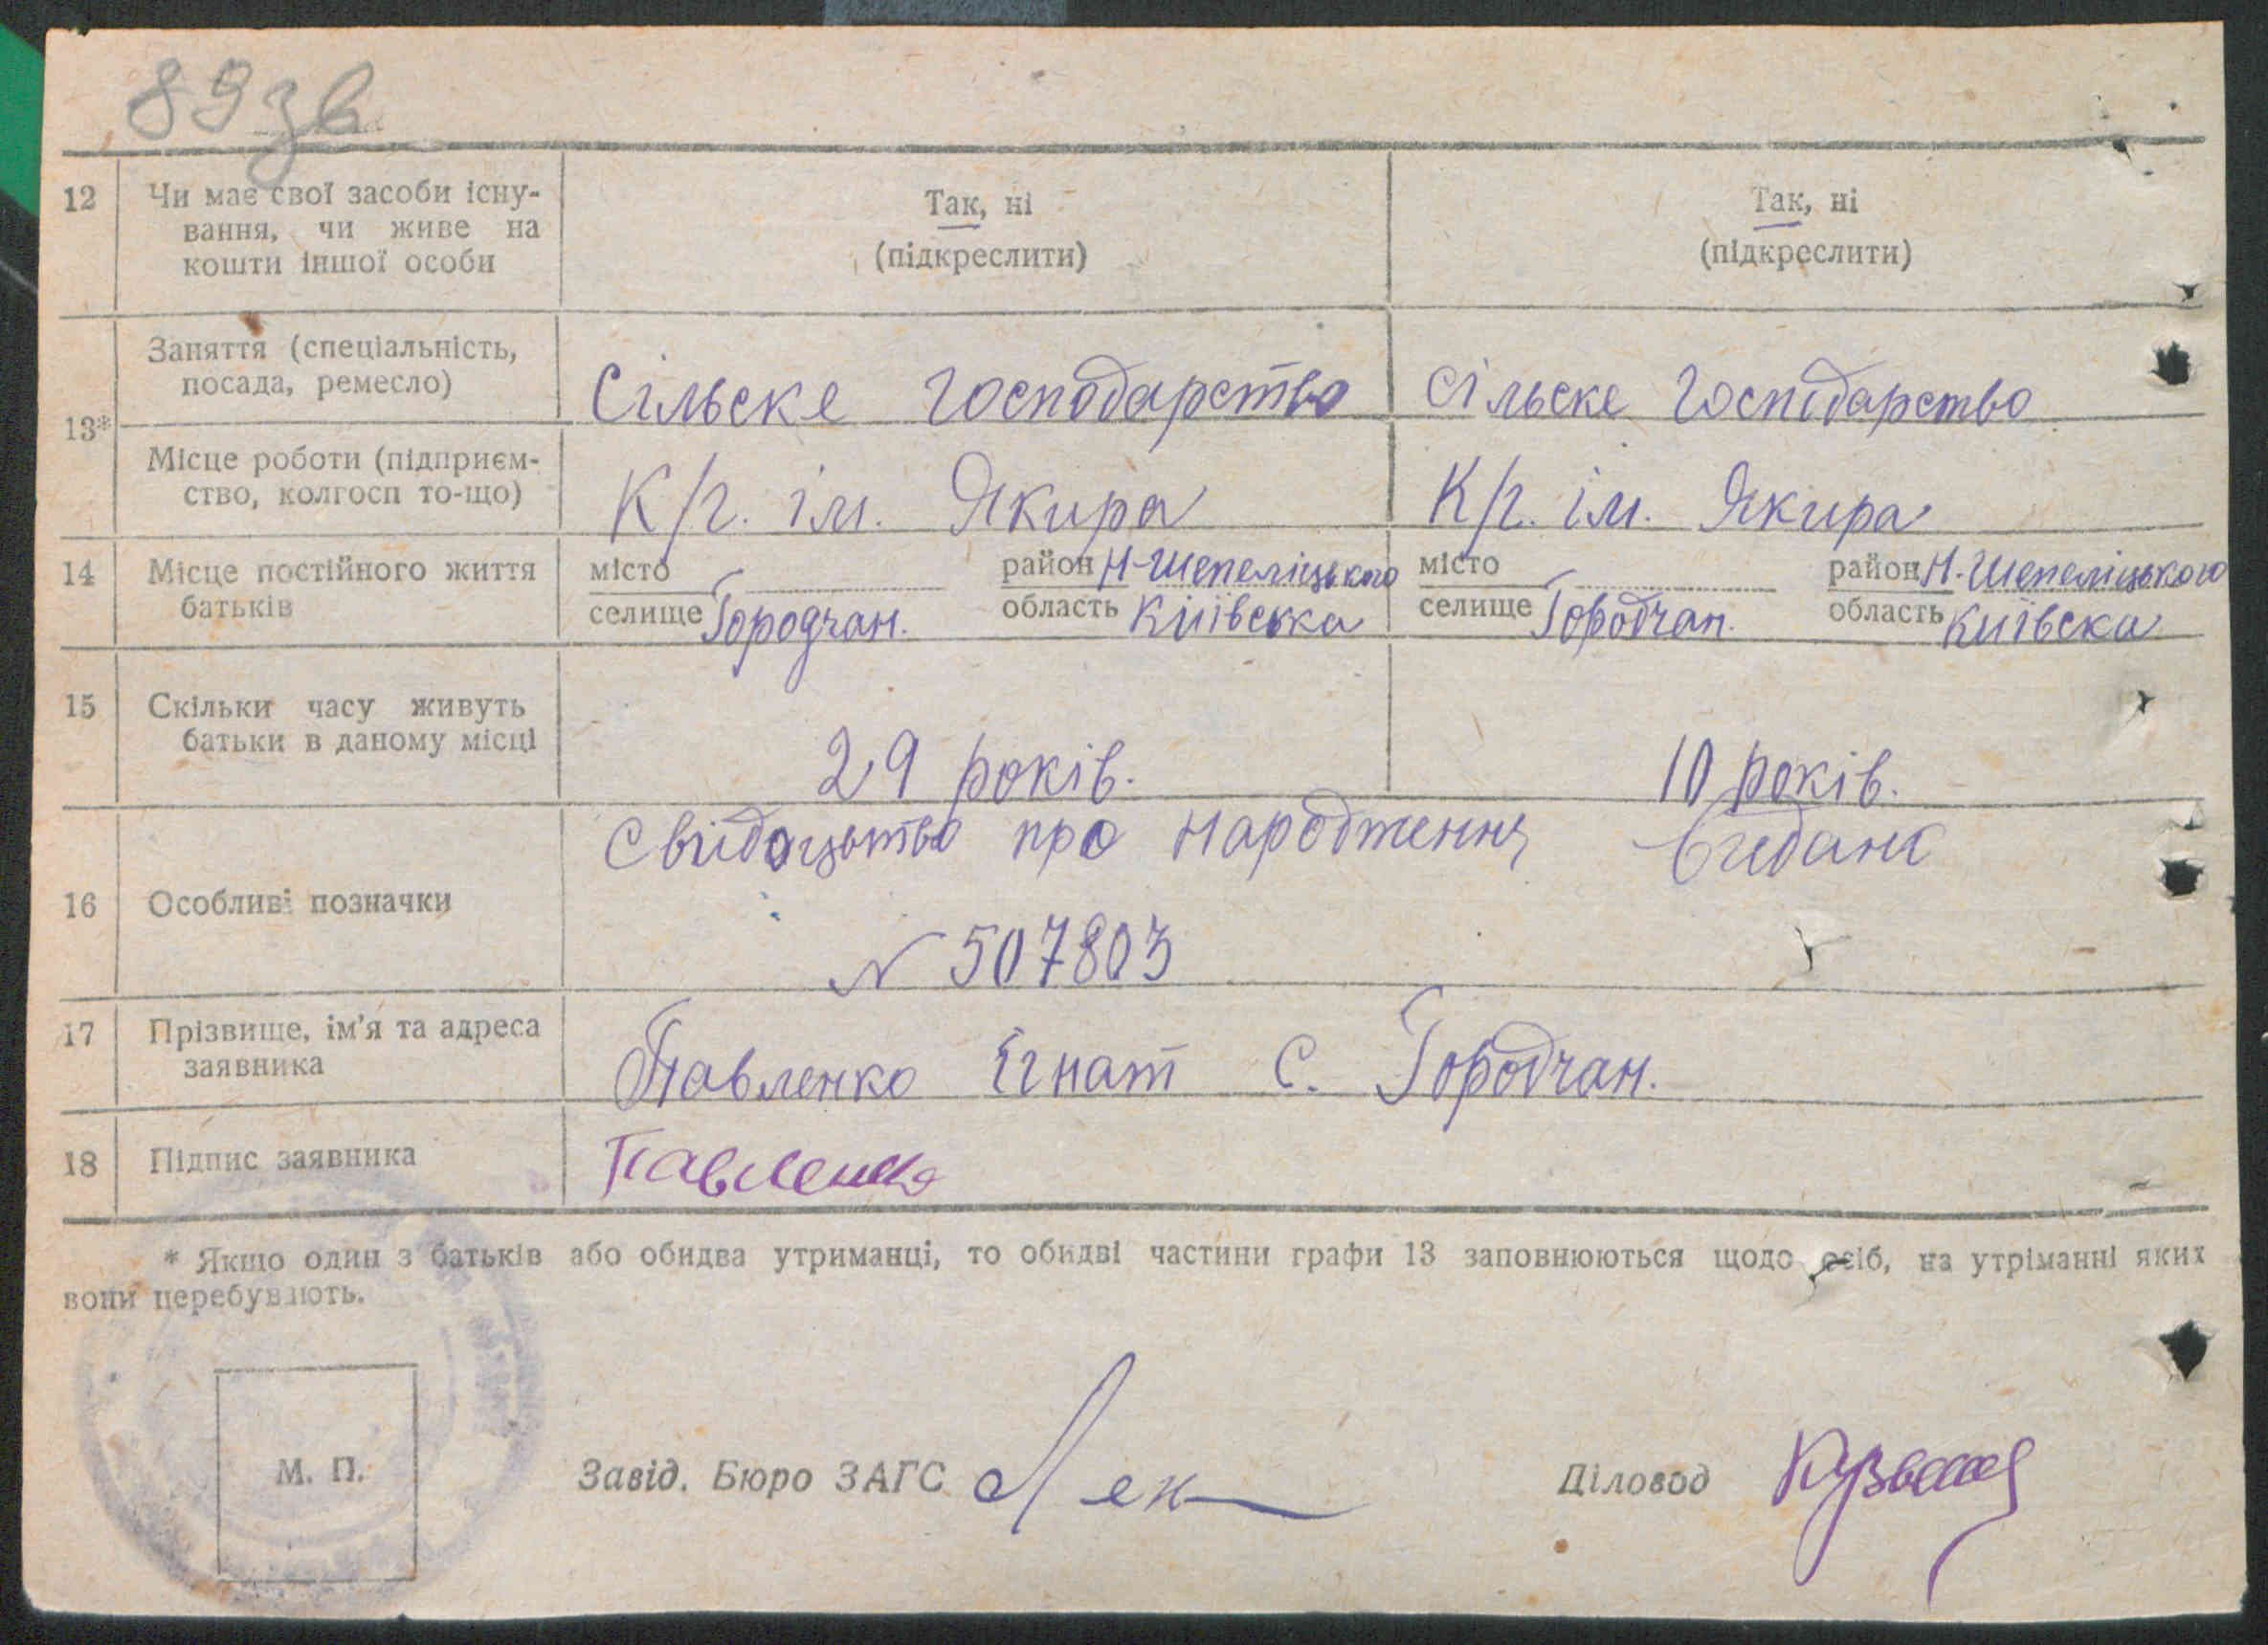 89 зв
12 Чи має свої засоби існу- Так, ні Так, ні
вання, чи живе на (підкреслити) (підкреслити)
кошти іншої особи
13* Заняття (спеціальність, Сільске господарство сільске господарство
посада, ремесло)
Місце роботи (підприєм- К/г. ім. Якира К/г. ім. Якира
ство, колгосп то-що)
14 Місце постійного життя місто район Н-Шепеліцького місто район Н-Шепеліцького
батьків селище Городчан. область Київська селище Городчан. область Київска
15 Скільки часу живуть
батьки в даному місці 29 років. 10 років.
Свидоцьтво про народження видана
16 Особливі позначки
№ 507803
17 Прізвище, ім'я та адреса Павленко Ігнат С. Городчан.
заявника
18 Підпис заявника Павленко
* Якщо один з батьків або обидва утриманці, то обидві частини графи 13 заповнюються щодо осіб, на утріманні яких
вони перебувають.
М. П. Завід. Бюро ЗАГС Діловод